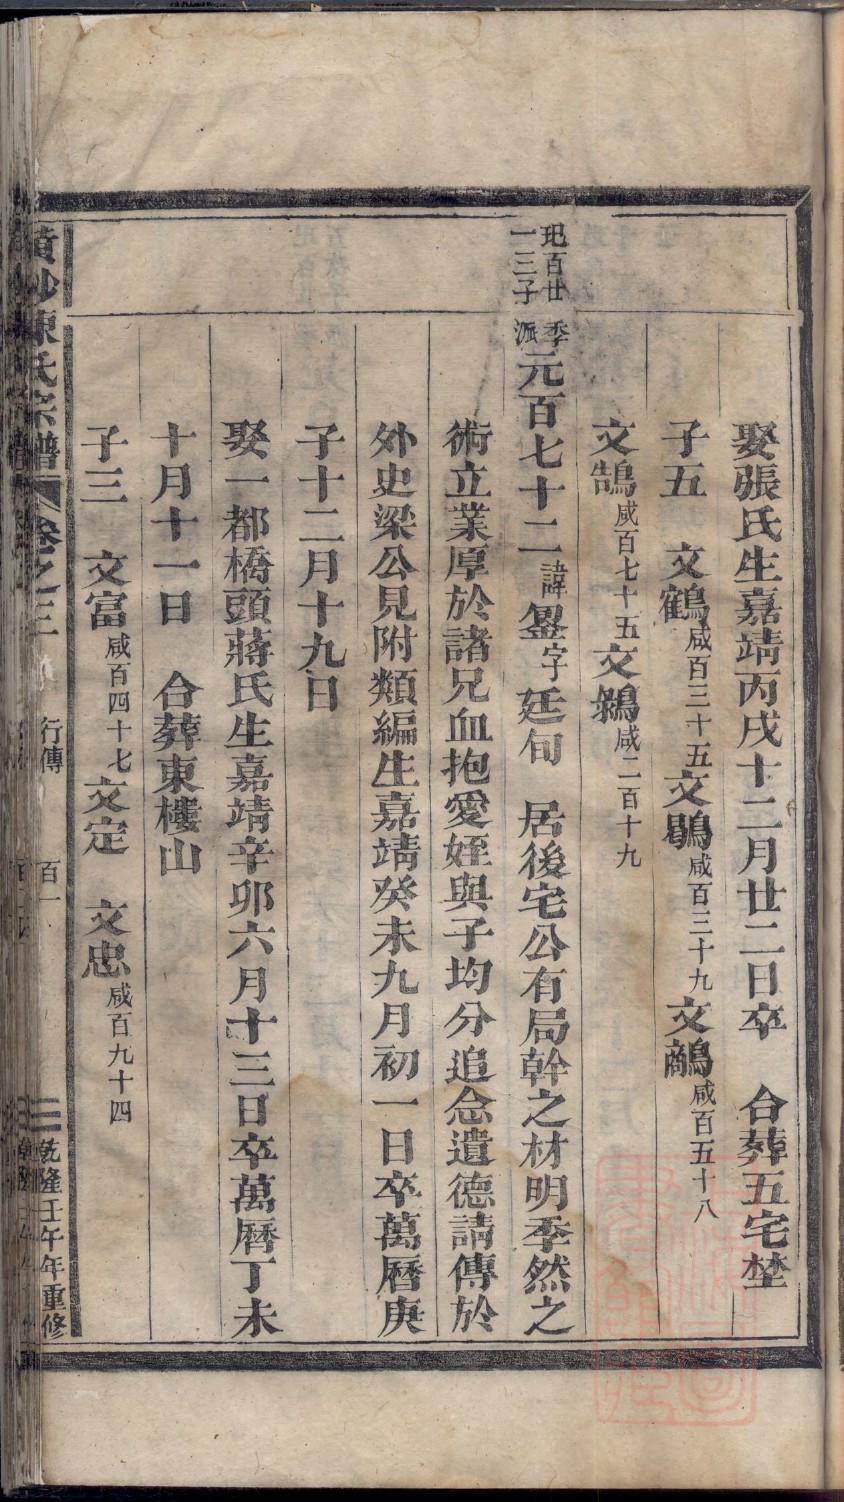 娶張氏生嘉靖丙戌十二月廿二日卒　合葬五宅塋
子五　文鶴咸百三十五文鶡咸百三十九文鷸咸百五十八
文鵠咸百七十五文鵺咸二百十九
玘百廿一三子
季派元百七十二諱字廷旬　居後宅公有局幹之材明季然之
術立業厚於諸兄血抱愛姪與子均分追念遺德請傳於
外史梁公見附類編生嘉靖癸未九月初一日卒萬曆庚
子十二月十九日
娶一都橋頭蔣氏生嘉靖辛卯六月十三日卒萬曆丁未
十月十一日　合葬東樓山
子三　文富咸百四十七文定　文忠咸百九十四
黄沙陳氏宗譜　卷之三　行傳　百一　乾隆壬午年重修